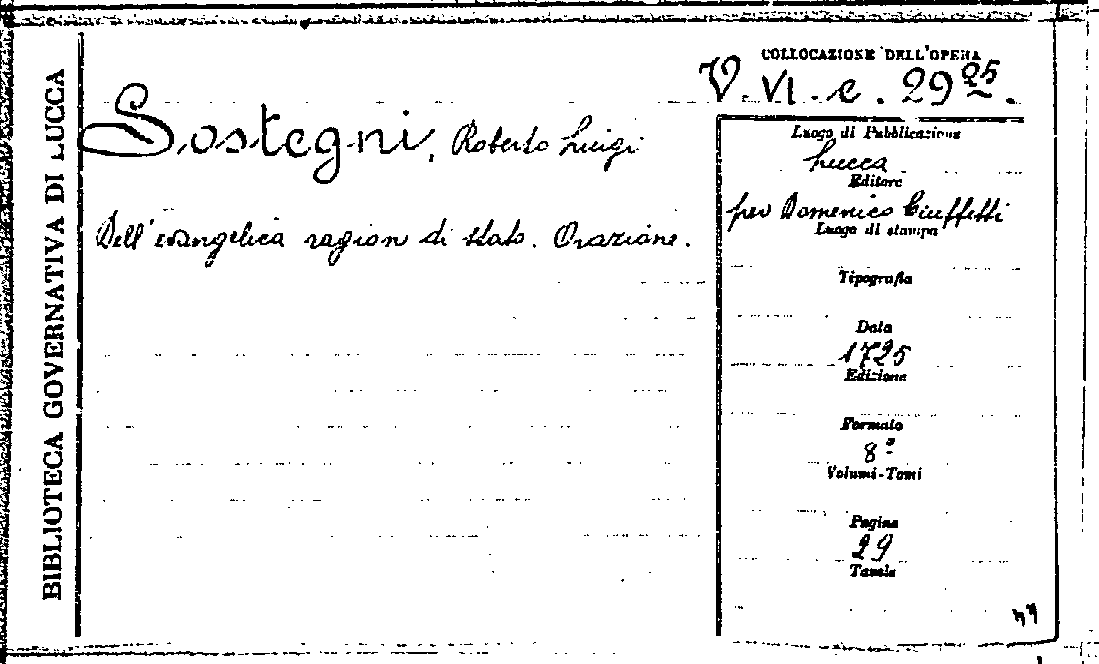 BIBLIOTECA GOVERNATIVA DI LUCCA
COLLOCAZIONE DELL'OPERA
V. VI. c. 29 25.
Sostegni, Roberto Luigi
Dell'evangelica ragion di stato. Orazione.
Luogo di Pubblicazione
Lucca
Editore
per Domenico Ciuffetti
Luogo di stampa
Tipografia
Data
1725
Edizione
Formato
8º
Volumi-Tomi
Pagine
29
Tavole